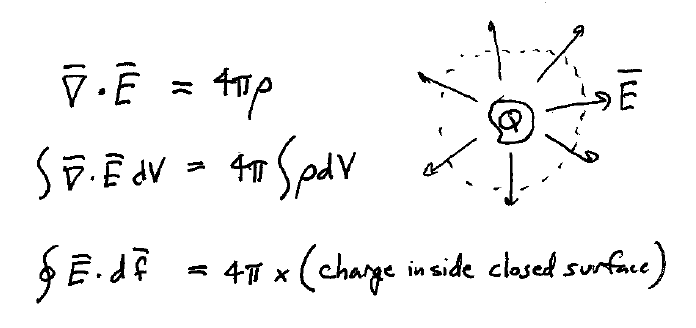 ∇̅ · E̅ = 4πρ
∫ ∇̅ · E̅ dV = 4π ∫ ρdV
∮ E̅ · df̅ = 4π × (charge inside closed surface)
Q
E̅